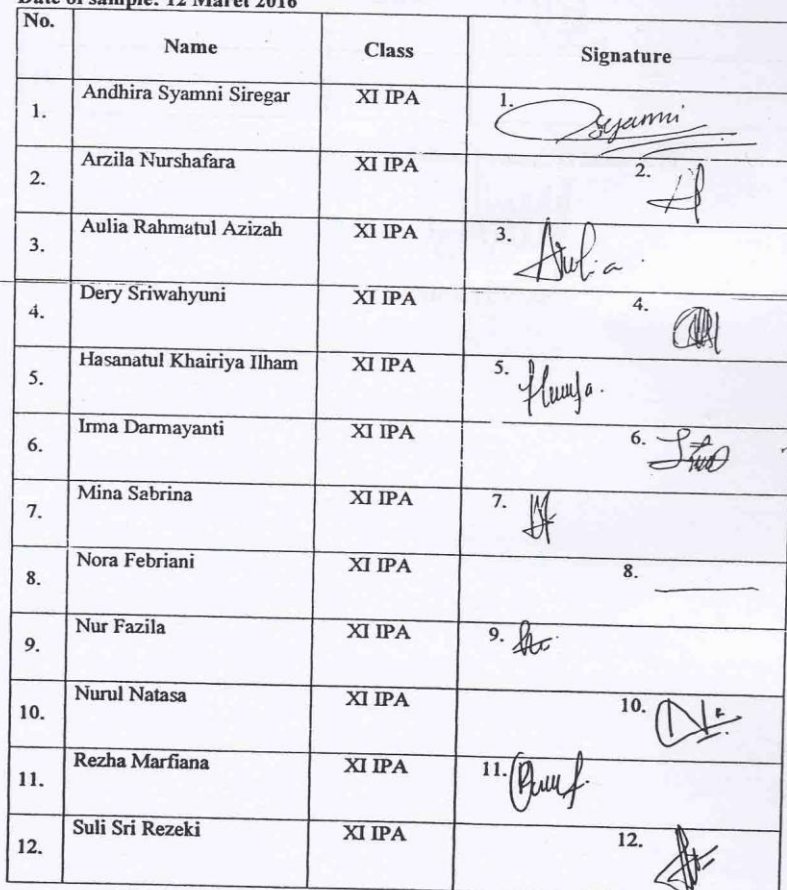 Date of sample: 12 Maret 2016
No. Name Class Signature
1. Andhira Syamni Siregar XI IPA 1. Syamni
2. Arzila Nurshafara XI IPA 2.
3. Aulia Rahmatul Azizah XI IPA 3. Aulia
4. Dery Sriwahyuni XI IPA 4.
5. Hasanatul Khairiya Ilham XI IPA 5.
6. Irma Darmayanti XI IPA 6.
7. Mina Sabrina XI IPA 7.
8. Nora Febriani XI IPA 8.
9. Nur Fazila XI IPA 9.
10. Nurul Natasa XI IPA 10.
11. Rezha Marfiana XI IPA 11.
12. Suli Sri Rezeki XI IPA 12.